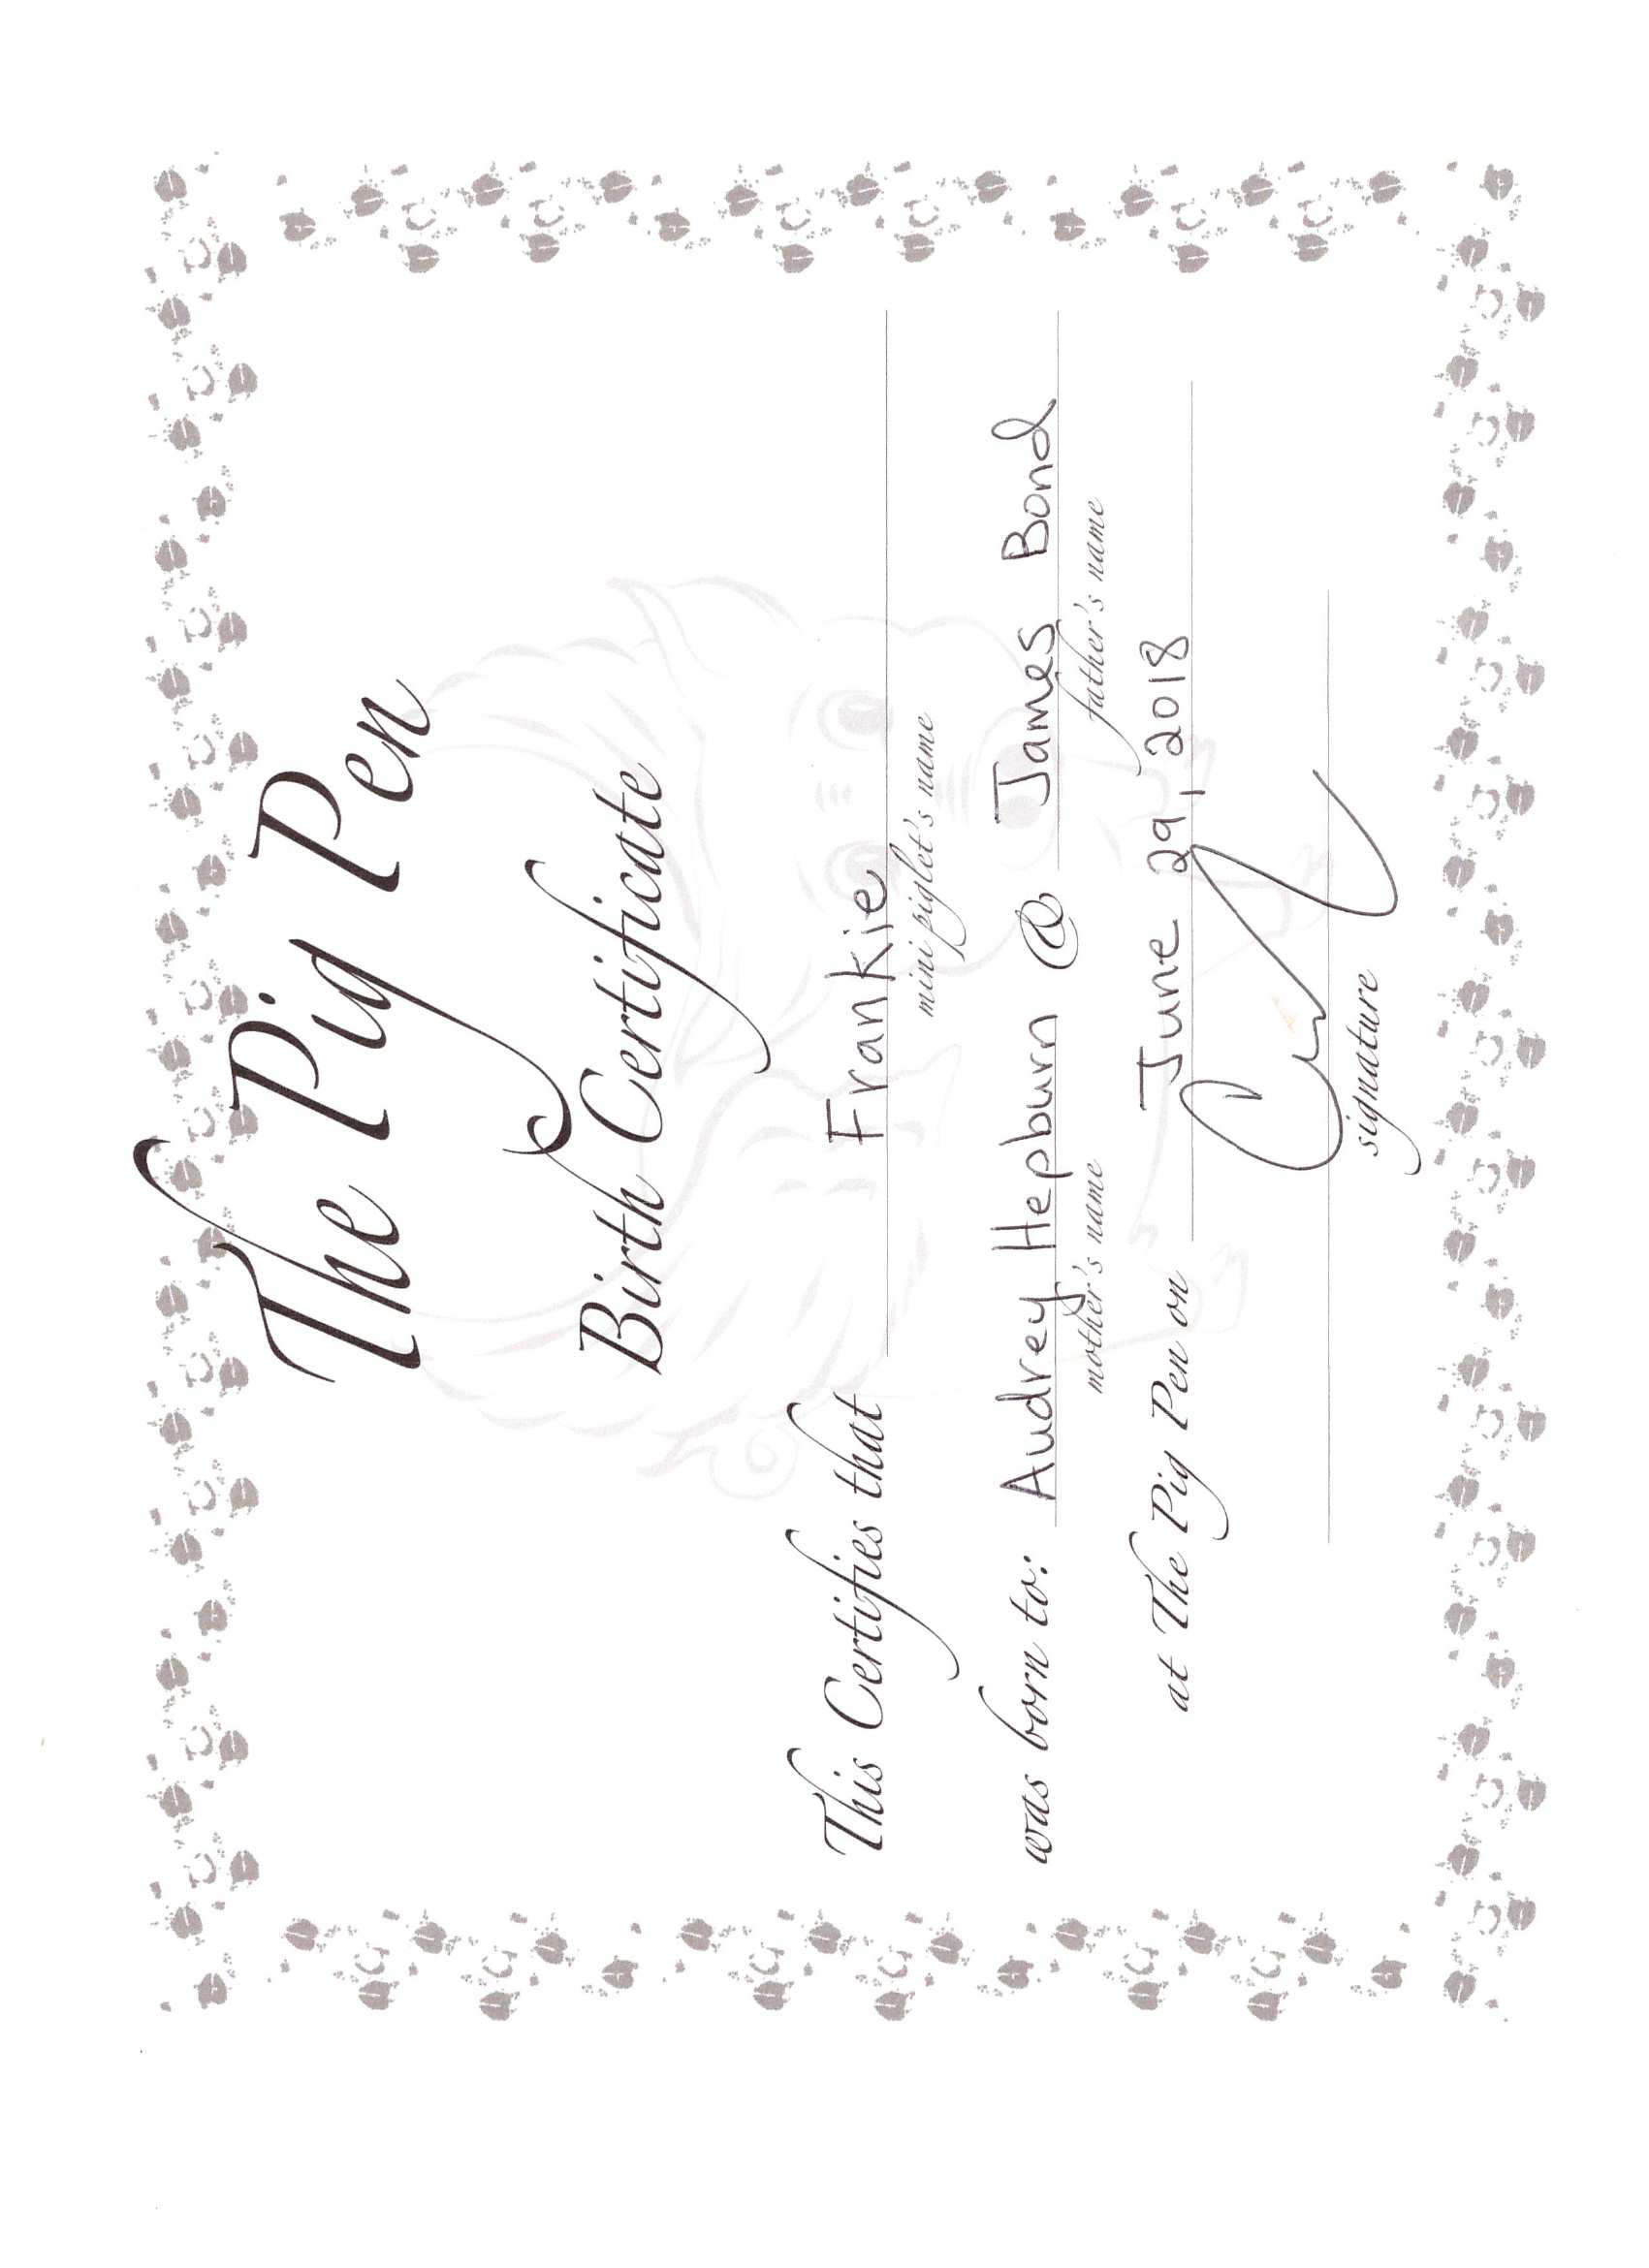 The Pig Pen
Birth Certificate
This Certifies that Frankie
mini piglet's name
was born to: Audrey Hepburn & James Bond
mother's name father's name
at The Pig Pen on June 29, 2018
signature